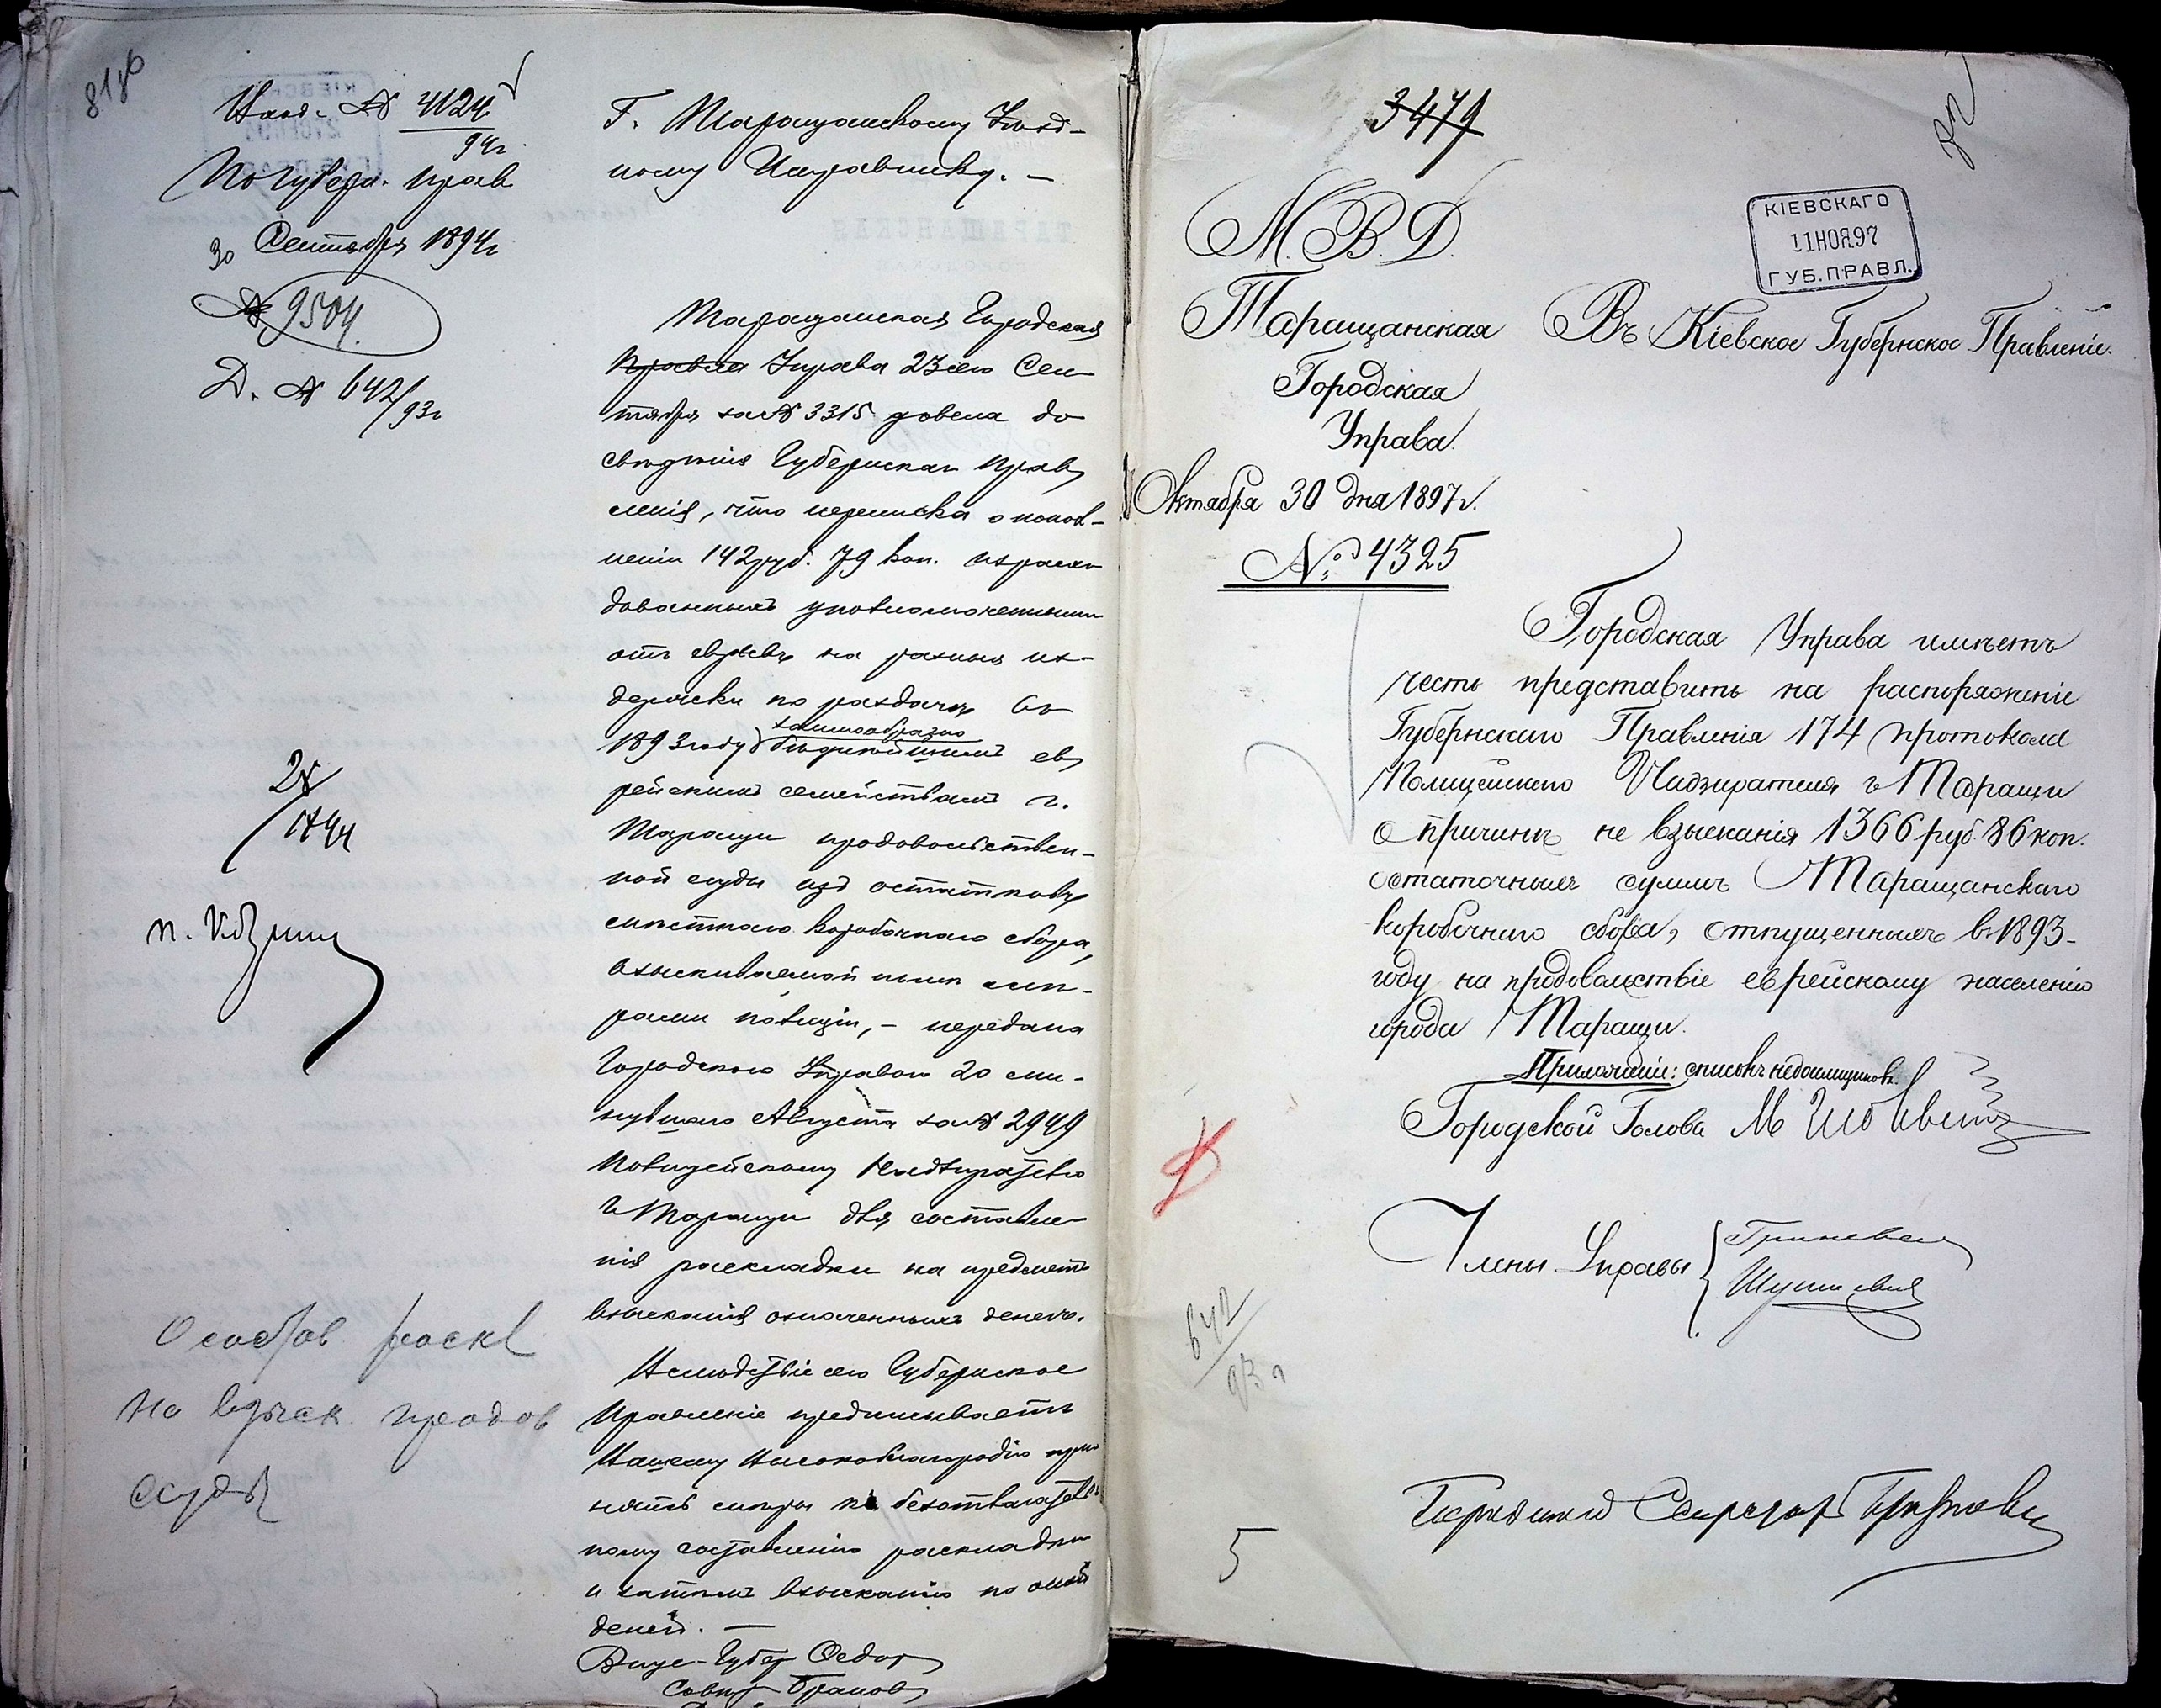 81 об
Вход. № 4124
94 г.
По Губерн. Прав.
30 Сентября 1894 г
№ 9504.
Д. № 642/93 г
Г. Таращанскому Уѣзд-
ному Исправнику. —
Таращанская Городская
Управа 23 сего Сен-
тября за № 3315 довела до
свѣдѣнія Губернскаго Прав
ленія, что переписка о попол-
неніи 142 руб. 79 коп. израсхо
дованныхъ уполномоченными
отъ евреевъ на разныя из-
держки по раздачѣ въ
1893 году заимообразно
бѣднѣйшимъ ев
рейскимъ семействамъ г.
Таращи продовольствен-
ной ссуды изъ остатковъ
смѣтнаго коробочнаго сбора,
взыскиваемой нынѣ мѣ-
рами полиціи, — передана
Городскою Управою 20 ми-
нувшаго Августа за № 2949
Полицейскому Надзирателю
г. Таращи для составле-
нія раскладки на предметъ
взысканія означенныхъ денегъ.
Вслѣдствіе сего Губернское
Правленіе предписываетъ
Вашему Высокоблагородію при
нять мѣры къ безотлагатель
ному составленію раскладки
и затѣмъ взысканію по оной
денегъ. —
Вице-Губер Федор
Совѣт
2/X
1894
Особ раскл
на взыск. продов
ссуды
3479
М. В. Д.
Таращанская
Городская
Управа.
Октября 30 дня 1897 г.
№ 4325
КІЕВСКАГО
11 НОЯ. 97
ГУБ. ПРАВЛ.
Въ Кіевское Губернское Правленіе.
Городская Управа имѣетъ
честь представить на распоряженіе
Губернскаго Правленія 174 протокола
Полицейскаго Надзирателя г. Таращи
о причинѣ не взысканія 1366 руб. 86 коп.
остаточныхъ суммъ Таращанскаго
коробочнаго сбора, отпущенныхъ въ 1893-
году на продовольствіе еврейскому населенію
города Таращи.
Приложеніе: списокъ недоимщиковъ.
Городской Голова М
Члены Управы
642
93 г
5
Секретарь